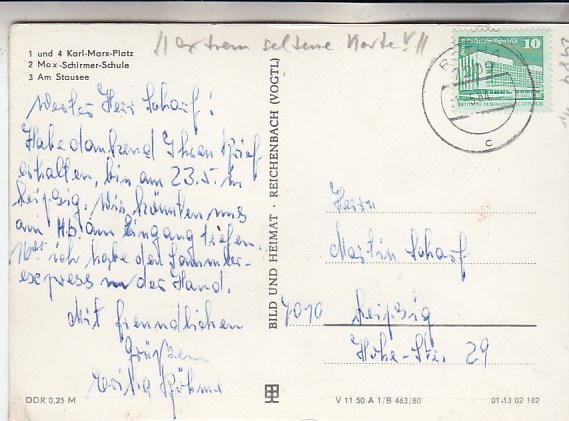 // extrem seltene Karte! //
1 und 4 Karl-Marx-Platz
2 Max-Schirmer-Schule
3 Am Stausee
Werter Herr Scharf!
Habe dankend Ihren Brief
erhalten, bin am 23.5. in
Leipzig. Wir könnten uns
am Hb am Eingang treffen.
16⁰⁰ ich habe den Sammler-
express in der Hand.
Mit freundlichen
Grüßen
Böhme
DDR 0,25 M
BILD UND HEIMAT · REICHENBACH (VOGTL)
10
7209
c
Herrn
Martin Scharf
7010 Leipzig
Hohe-Str. 29
V 11 50 A 1/B 463/80
01-13 02 182